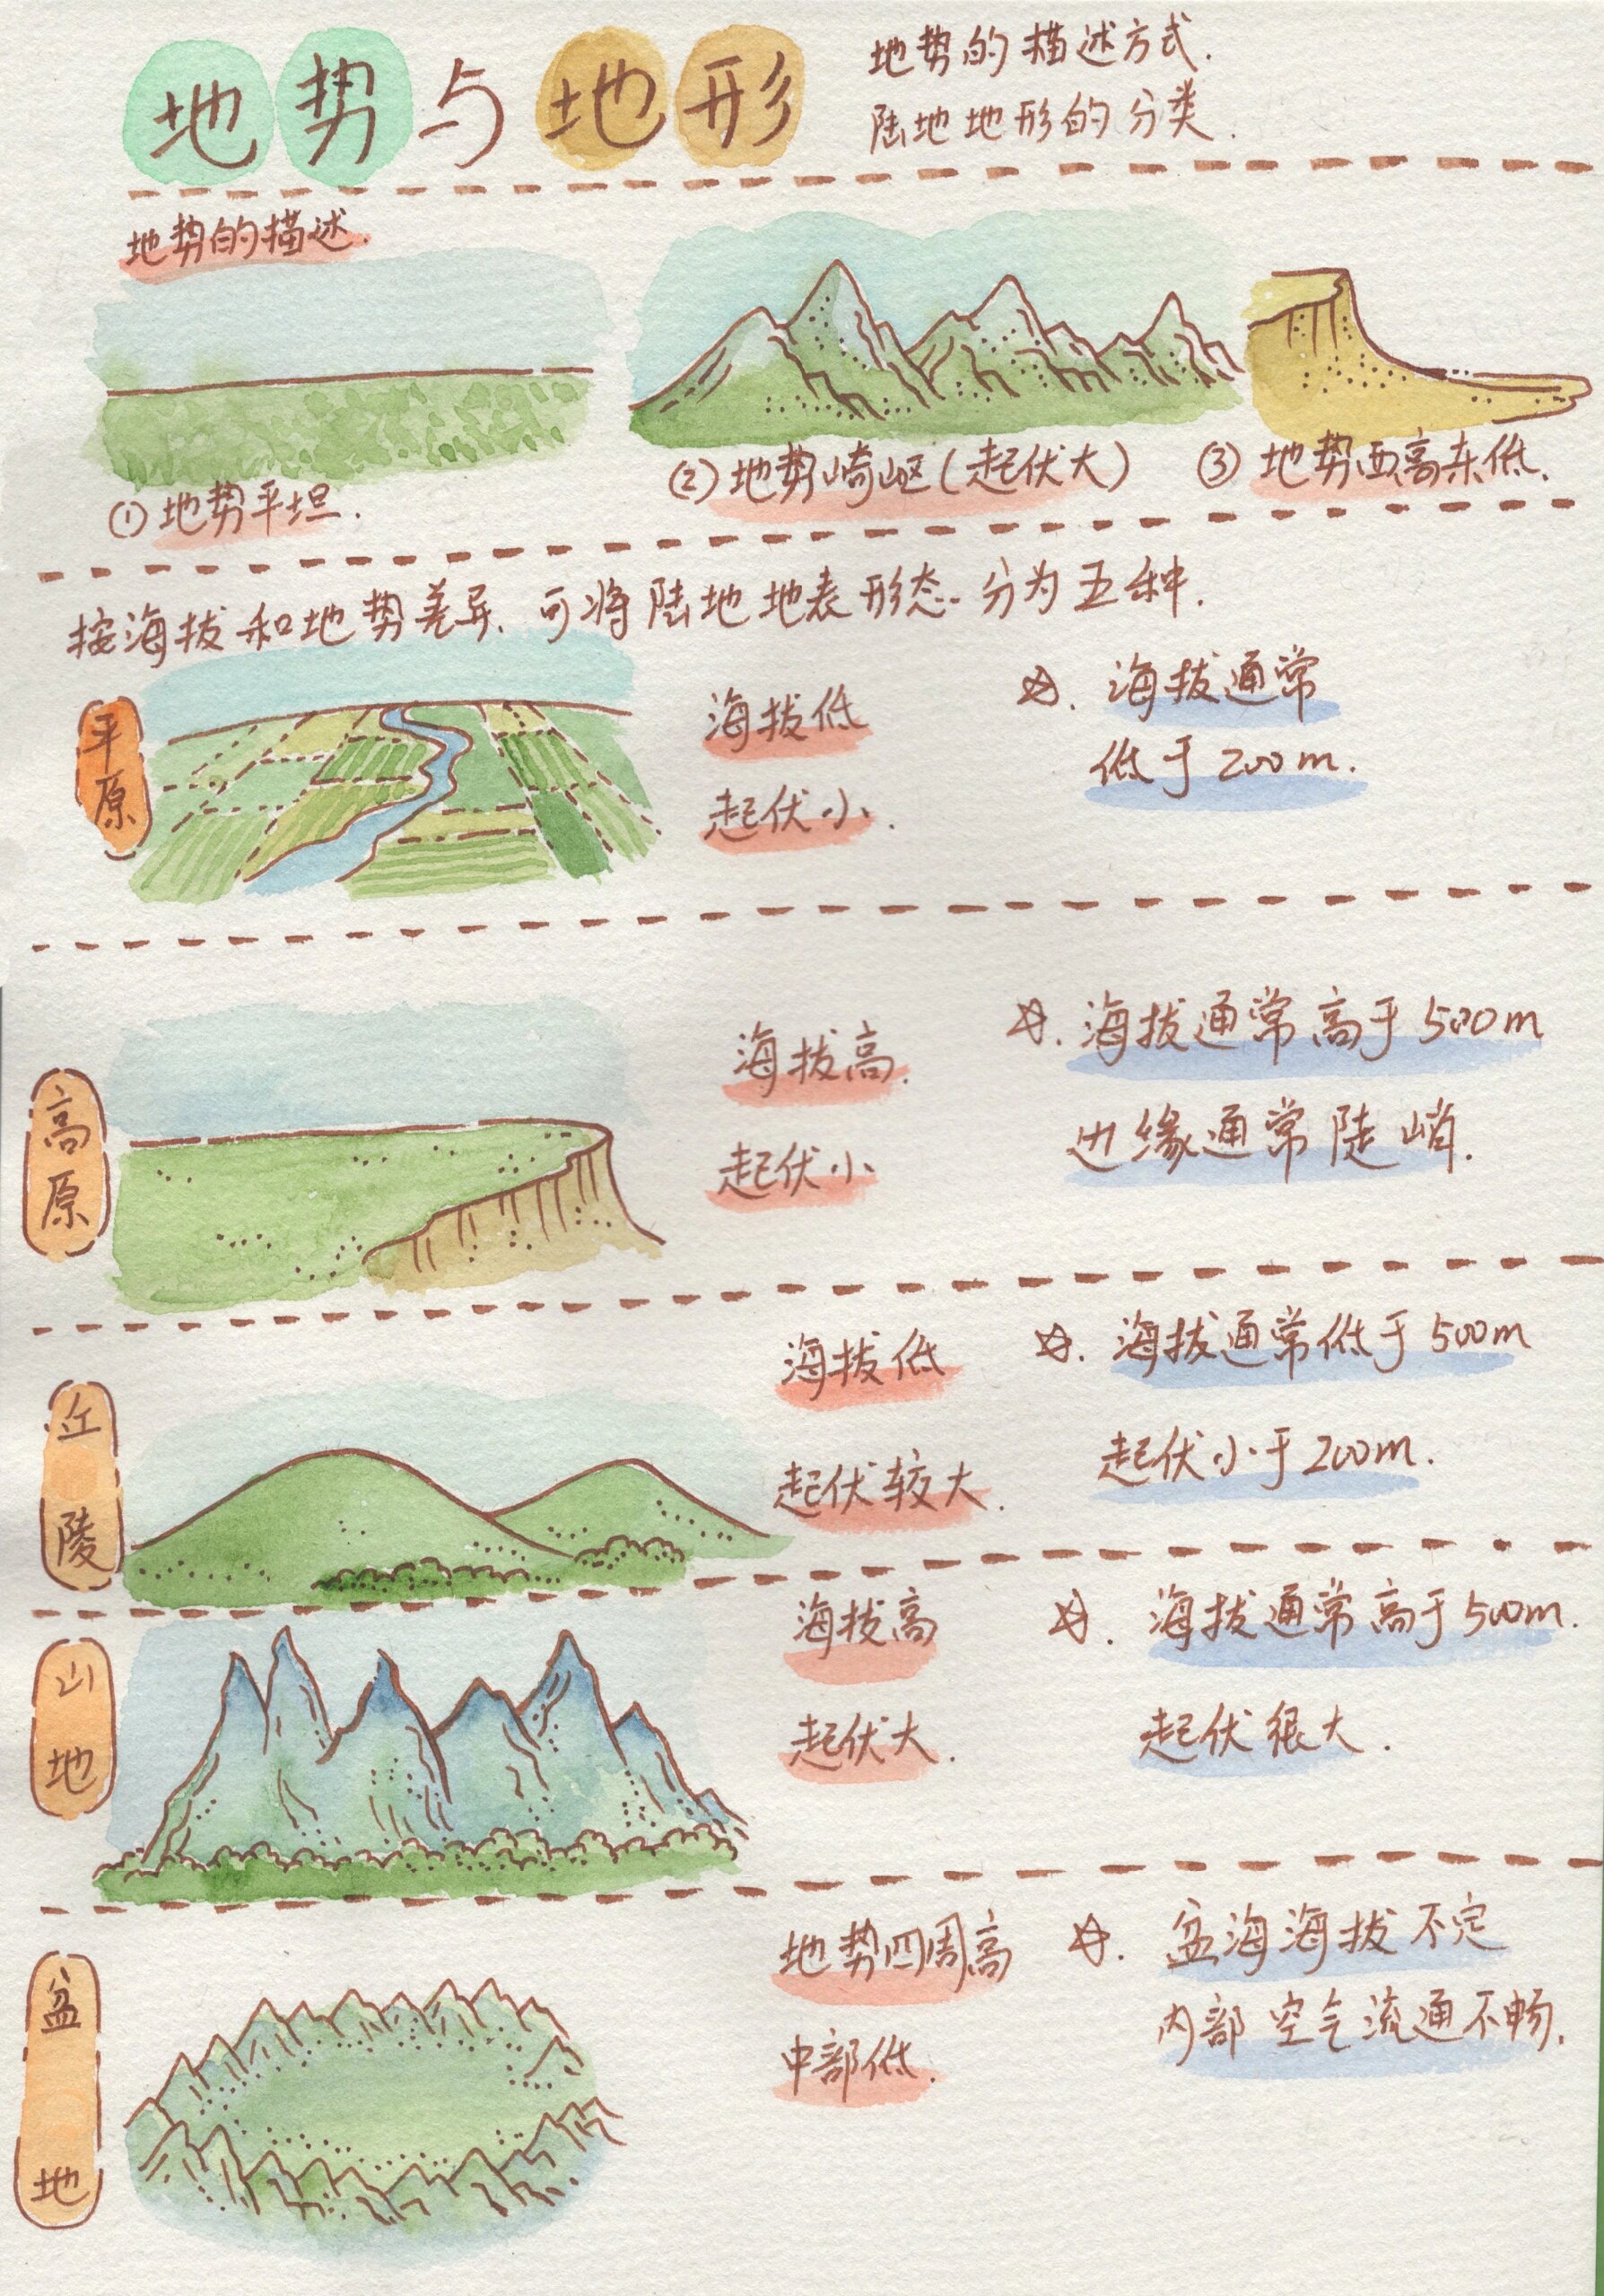 地势与地形
地势的描述方式.
陆地地形的分类.
地势的描述.
①地势平坦.
②地势崎岖(起伏大)
③地势西高东低.
按海拔和地势差异、可将陆地地表形态..分为五种.
平原
海拔低
起伏小.
☆.海拔通常
低于200m.
高原
海拔高.
起伏小
☆.海拔通常高于500m
边缘通常陡峭.
丘陵
海拔低
起伏较大.
☆.海拔通常低于500m
起伏小于200m.
山地
海拔高
起伏大.
☆.海拔通常高于500m.
起伏很大.
盆地
地势四周高
中部低.
☆.盆海海拔不定
内部空气流通不畅.